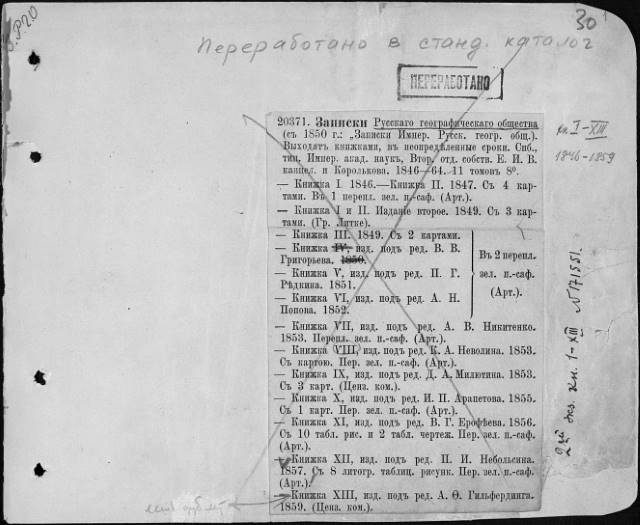 30
Переработано в станд. каталог
ПЕРЕРАБОТАНО
20371. Записки Русскаго географическаго общества
(съ 1850 г.: „Записки Импер. Русск. геогр. общ.).
Выходятъ книжками, въ неопредѣленные сроки. Спб.,
тип. Импер. акад. наукъ, Втор. отд. собств. Е. И. В.
канцел. и Королькова. 1846—64. 11 томовъ 8º.
— Книжка I. 1846.—Книжка II. 1847. Съ 4 кар-
тами. Въ 1 перепл. зел. п.-саф. (Арт.).
— Книжка I и II. Изданіе второе. 1849. Съ 3 кар-
тами. (Гр. Литке).
— Книжка III. 1849. Съ 2 картами.
— Книжка IV, изд. подъ ред. В. В.
Григорьева. 1850.
— Книжка V, изд. подъ ред. П. Г.
Рѣдкина. 1851.
— Книжка VI, изд. подъ ред. А. Н.
Попова. 1852.
Въ 2 перепл.
зел. п.-саф.
(Арт.).
— Книжка VII, изд. подъ ред. А. В. Никитенко.
1853. Перепл. зел. п.-саф. (Арт.).
— Книжка VIII, изд. подъ ред. К. А. Неволина. 1853.
Съ картою. Пер. зел. п.-саф. (Арт.).
— Книжка IX, изд. подъ ред. Д. А. Милютина. 1853.
Съ 3 карт. (Ценз. ком.).
— Книжка X, изд. подъ ред. И. П. Арапетова. 1855.
Съ 1 карт. Пер. зел. п.-саф. (Арт.).
— Книжка XI, изд. подъ ред. В. Г. Ерофѣева. 1856.
Съ 10 табл. рис. и 2 табл. чертеж. Пер. зел. п.-саф.
(Арт.).
— Книжка XII, изд. подъ ред. П. И. Небольсина.
1857. Съ 8 литогр. таблиц. рисунк. Пер. зел. п.-саф.
(Арт.).
— Книжка XIII, изд. подъ ред. А. Ѳ. Гильфердинга.
1859. (Ценз. ком.).
кн. I–XIII
1846–1859
2ой экз. кн. I–XIII № 171551.